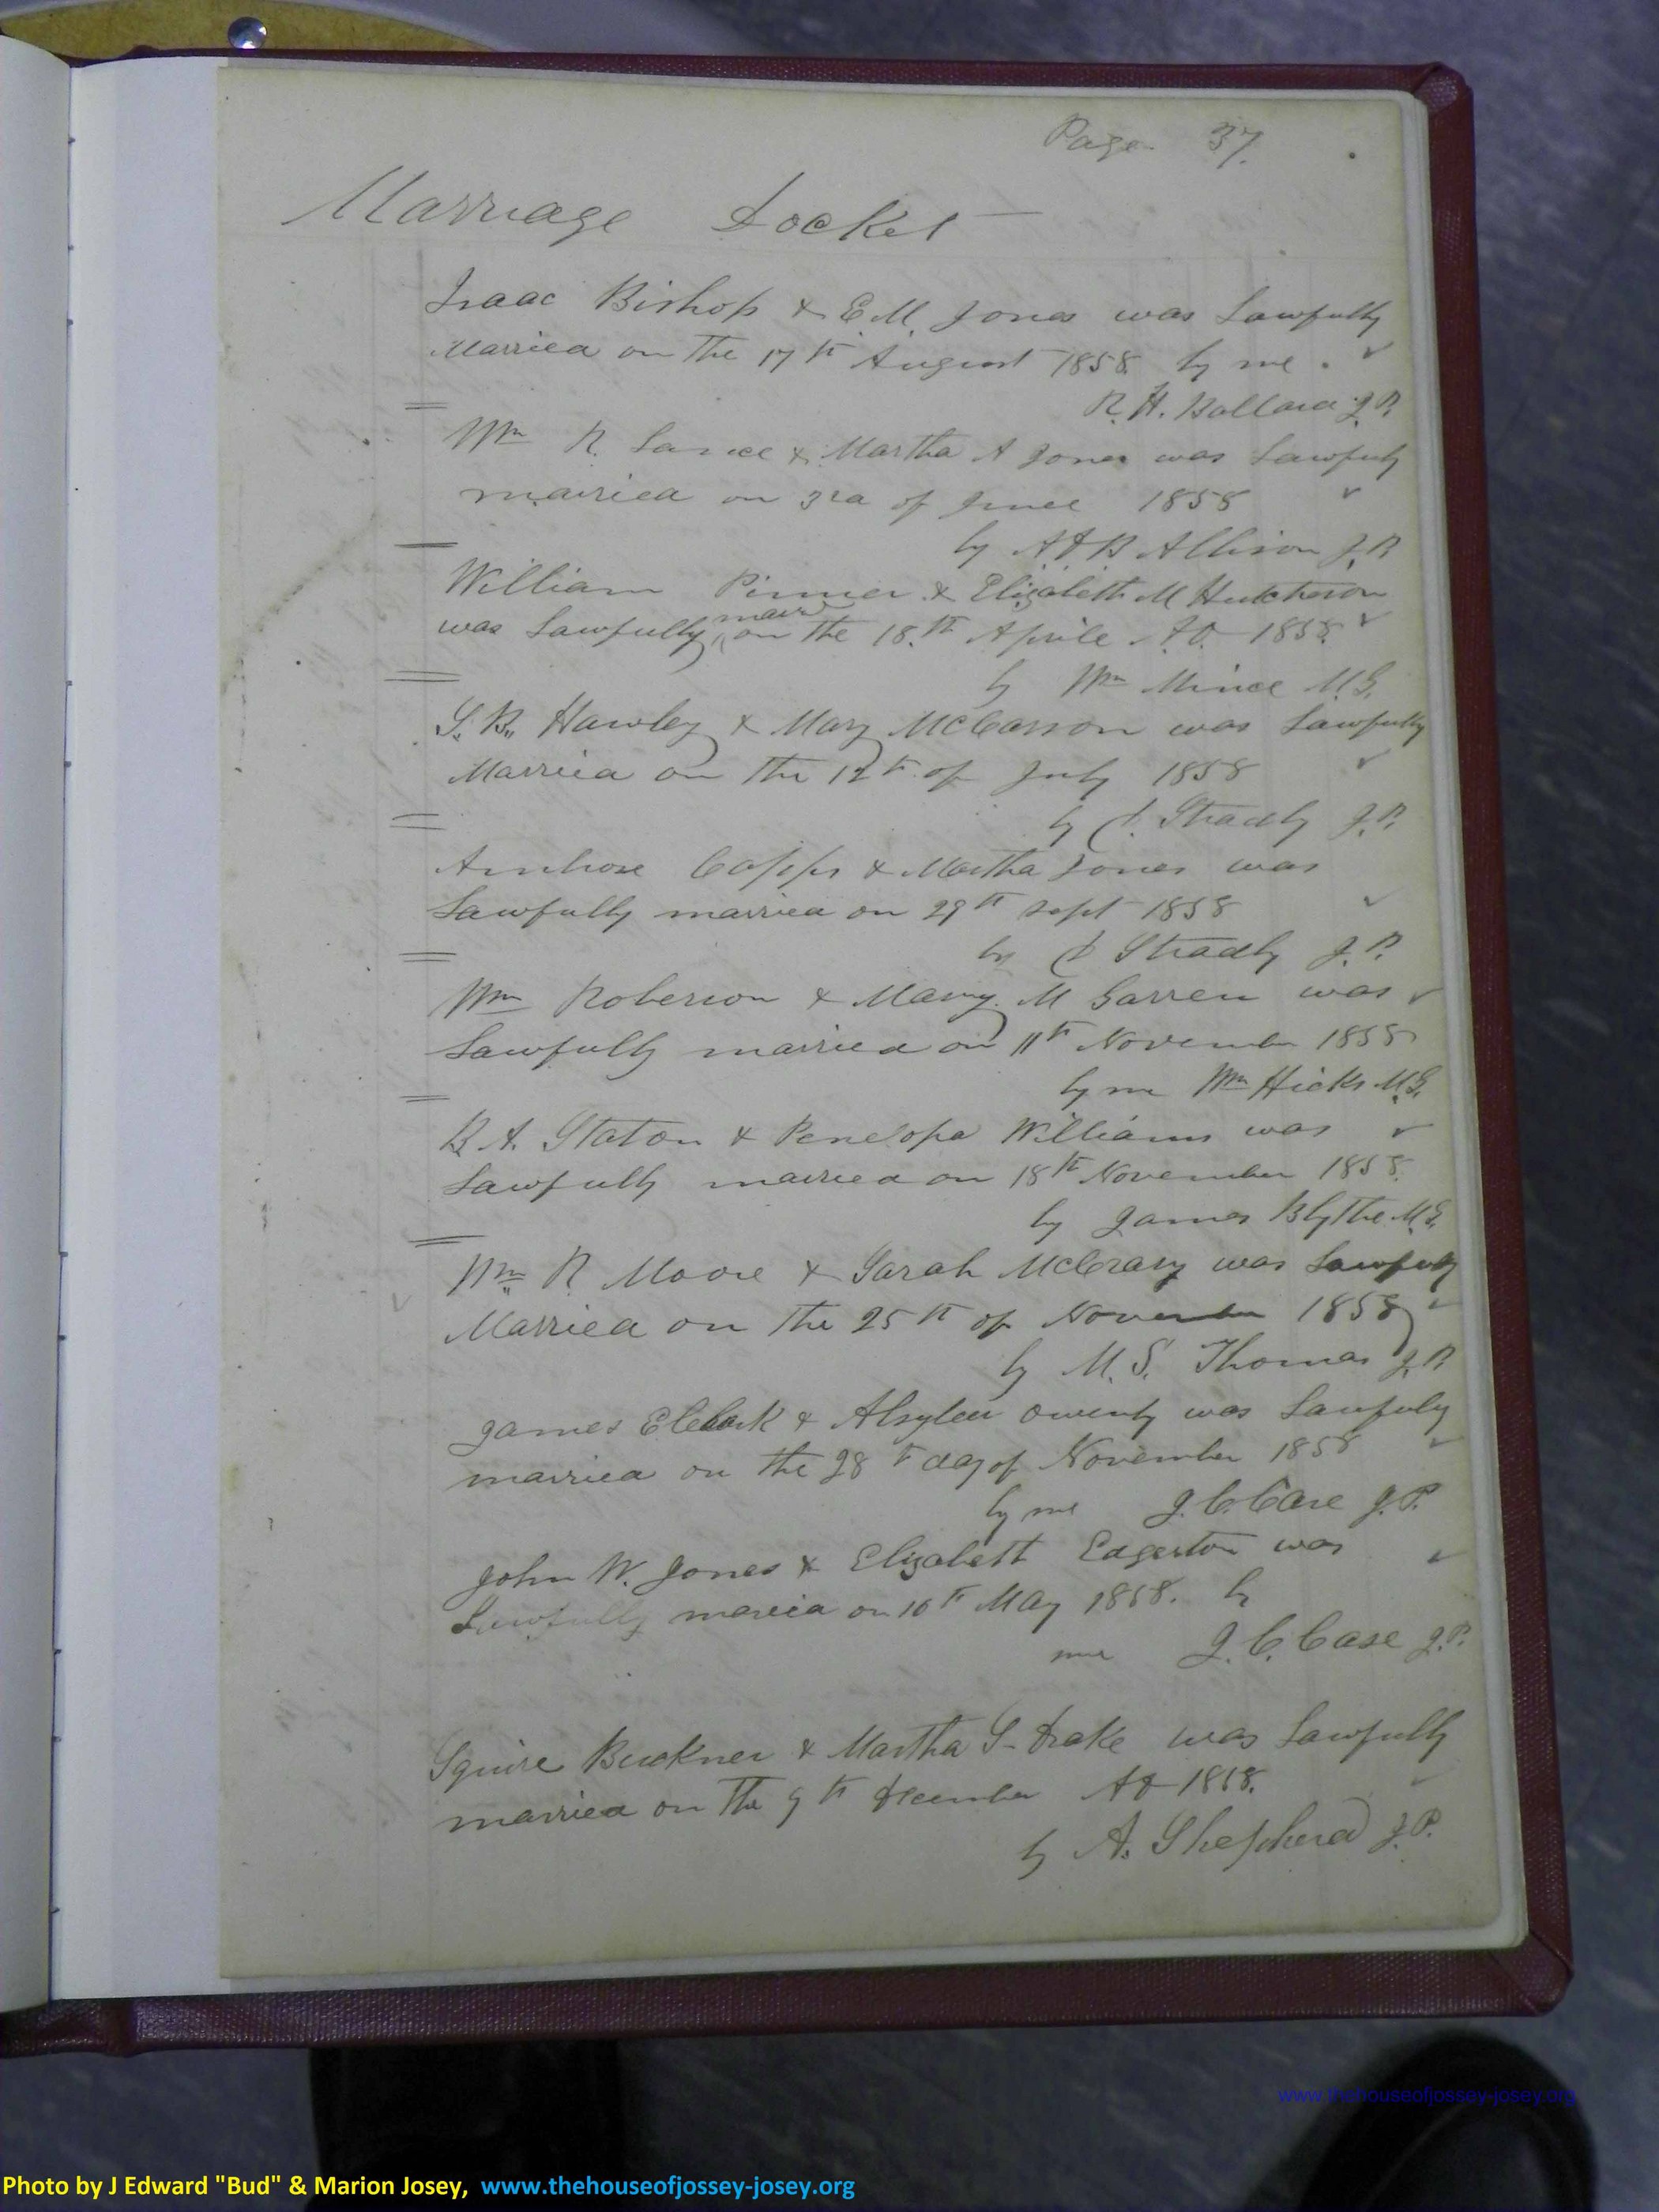 Page 37.
Marriage Docket
Isaac Bishop & E.M. Jones was Lawfully
Married on the 17th August 1858. by me.
R. H. Ballard J.P.
Wm R. Lance & Martha A Jones was Lawfuly
married on 3rd of June 1858
by A D B Allison J.P.
William Pinner & Elizabeth M Hutcherson
was Lawfully marrd on the 18.th Aprile A.D. 1858.
by Wm Mince M.G.
S. B. Hawley & Mary McCarson was Lawfully
Married on the 12th of July 1858
by Stradly J.P.
Ambrose Capps & Martha Jones was
Lawfully married on 29th Sept 1858
by Stradly J.P.
Wm Roberson & Marry M Garren was
Lawfully married on 11th November 1858
by me Wm Hicks M.G.
B. A. Staton & Penelopa Williams was
Lawfully married on 18th November 1858.
by James Blythe M.G.
Wm R Moore & Sarah McCrary was Lawfully
Married on the 25th of November 1858
by M. S. Thomas J.P.
James E Clark & owenby was Lawfuly
married on the 28th day of November 1858
by me J. C. Case J.P.
John W. Jones & Elizabett Edgerton was
Lawfully married on 10th May 1858. by
me J. C. Case J.P.
Squire Buckner & Martha S. Drake was Lawfully
married on the 9th December AD 1858.
by A. Shepherd J.P.
www.thehouseofjossey-josey.org
Photo by J Edward "Bud" & Marion Josey, www.thehouseofjossey-josey.org